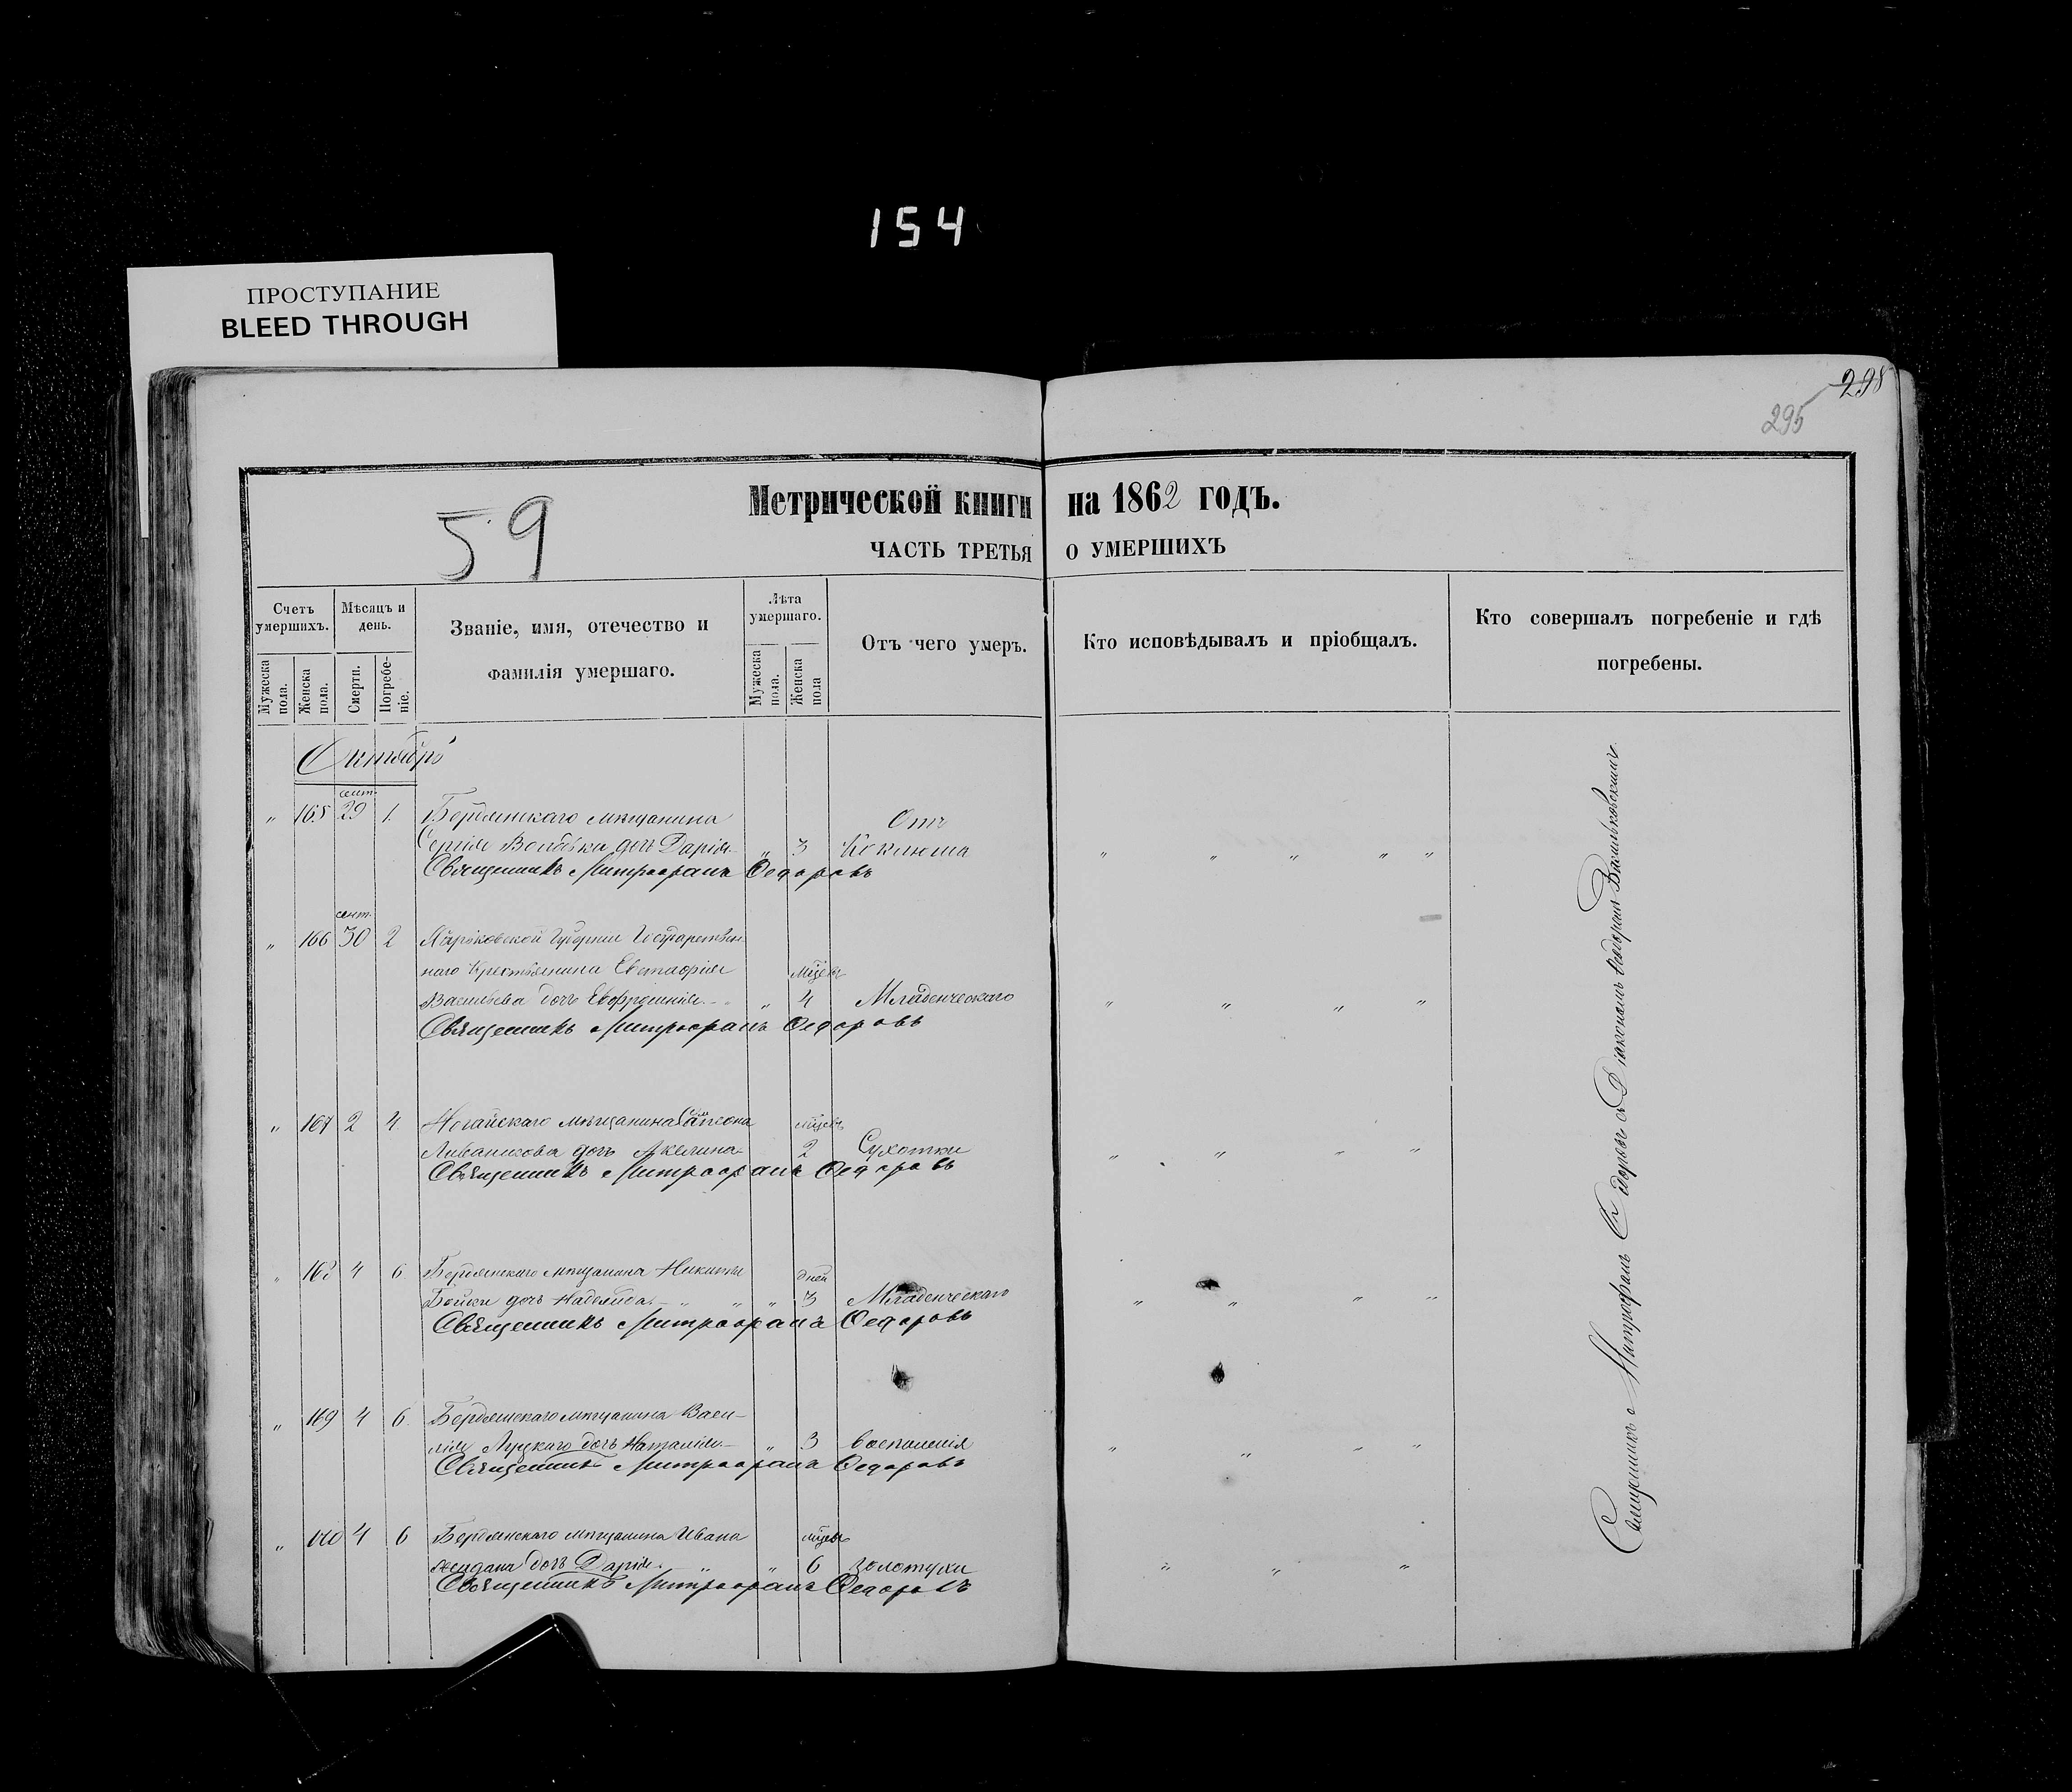 154
ПРОСТУПАНИЕ
BLEED THROUGH
298
295
59
Метрической книги на 1862 годъ.
ЧАСТЬ ТРЕТЬЯ О УМЕРШИХЪ
Счетъ умершихъ.
Мужеска пола.
Женска пола.
Мѣсяцъ и день.
Смерти.
Погребе-ніе.
Званіе, имя, отечество и
фамилія умершаго.
Лѣта умершаго.
Мужеска пола.
Женска пола
Отъ чего умеръ.
Кто исповѣдывалъ и пріобщалъ.
Кто совершалъ погребеніе и гдѣ
погребены.
Октябрь
сент.
" 165 29 1. Бердянскаго мѣщанина Отъ
Сергія дочь Дарія " 3 Коклюша " " " " "
Священникъ Митрофанъ Федоровъ
сент.
" 166 30 2 Харьковской Губерніи Государствен-
наго Крестьянина Евстафія мѣсец
Васильева дочь Евфросинія " 4 Младенческаго " " " "
Священникъ Митрофанъ Федоровъ
" 167 2 4 Ногайскаго мѣщанина мѣсец
дочь Акелина 2 Сухотки " " " "
Священникъ Митрофанъ Федоровъ
" 168 4 6 Бердянскаго мѣщанина Никиты дней
Бойки дочь Надежда " " " 3 Младенческаго " " " "
Священникъ Митрофанъ Федоровъ
" 169 4 6. Бердянскаго мѣщанина Васи-
лія Луцкаго дочь Наталія " 3 воспаленія " " " "
Священникъ Митрофанъ Федоровъ
" 170 4 6 Бердянскаго мѣщанина Ивана мѣсец
дочь Дарія " " 6 Золотухи " " "
Священникъ Митрофанъ Федоровъ
Священникъ Митрофанъ съ Діакономъ Васильковскимъ